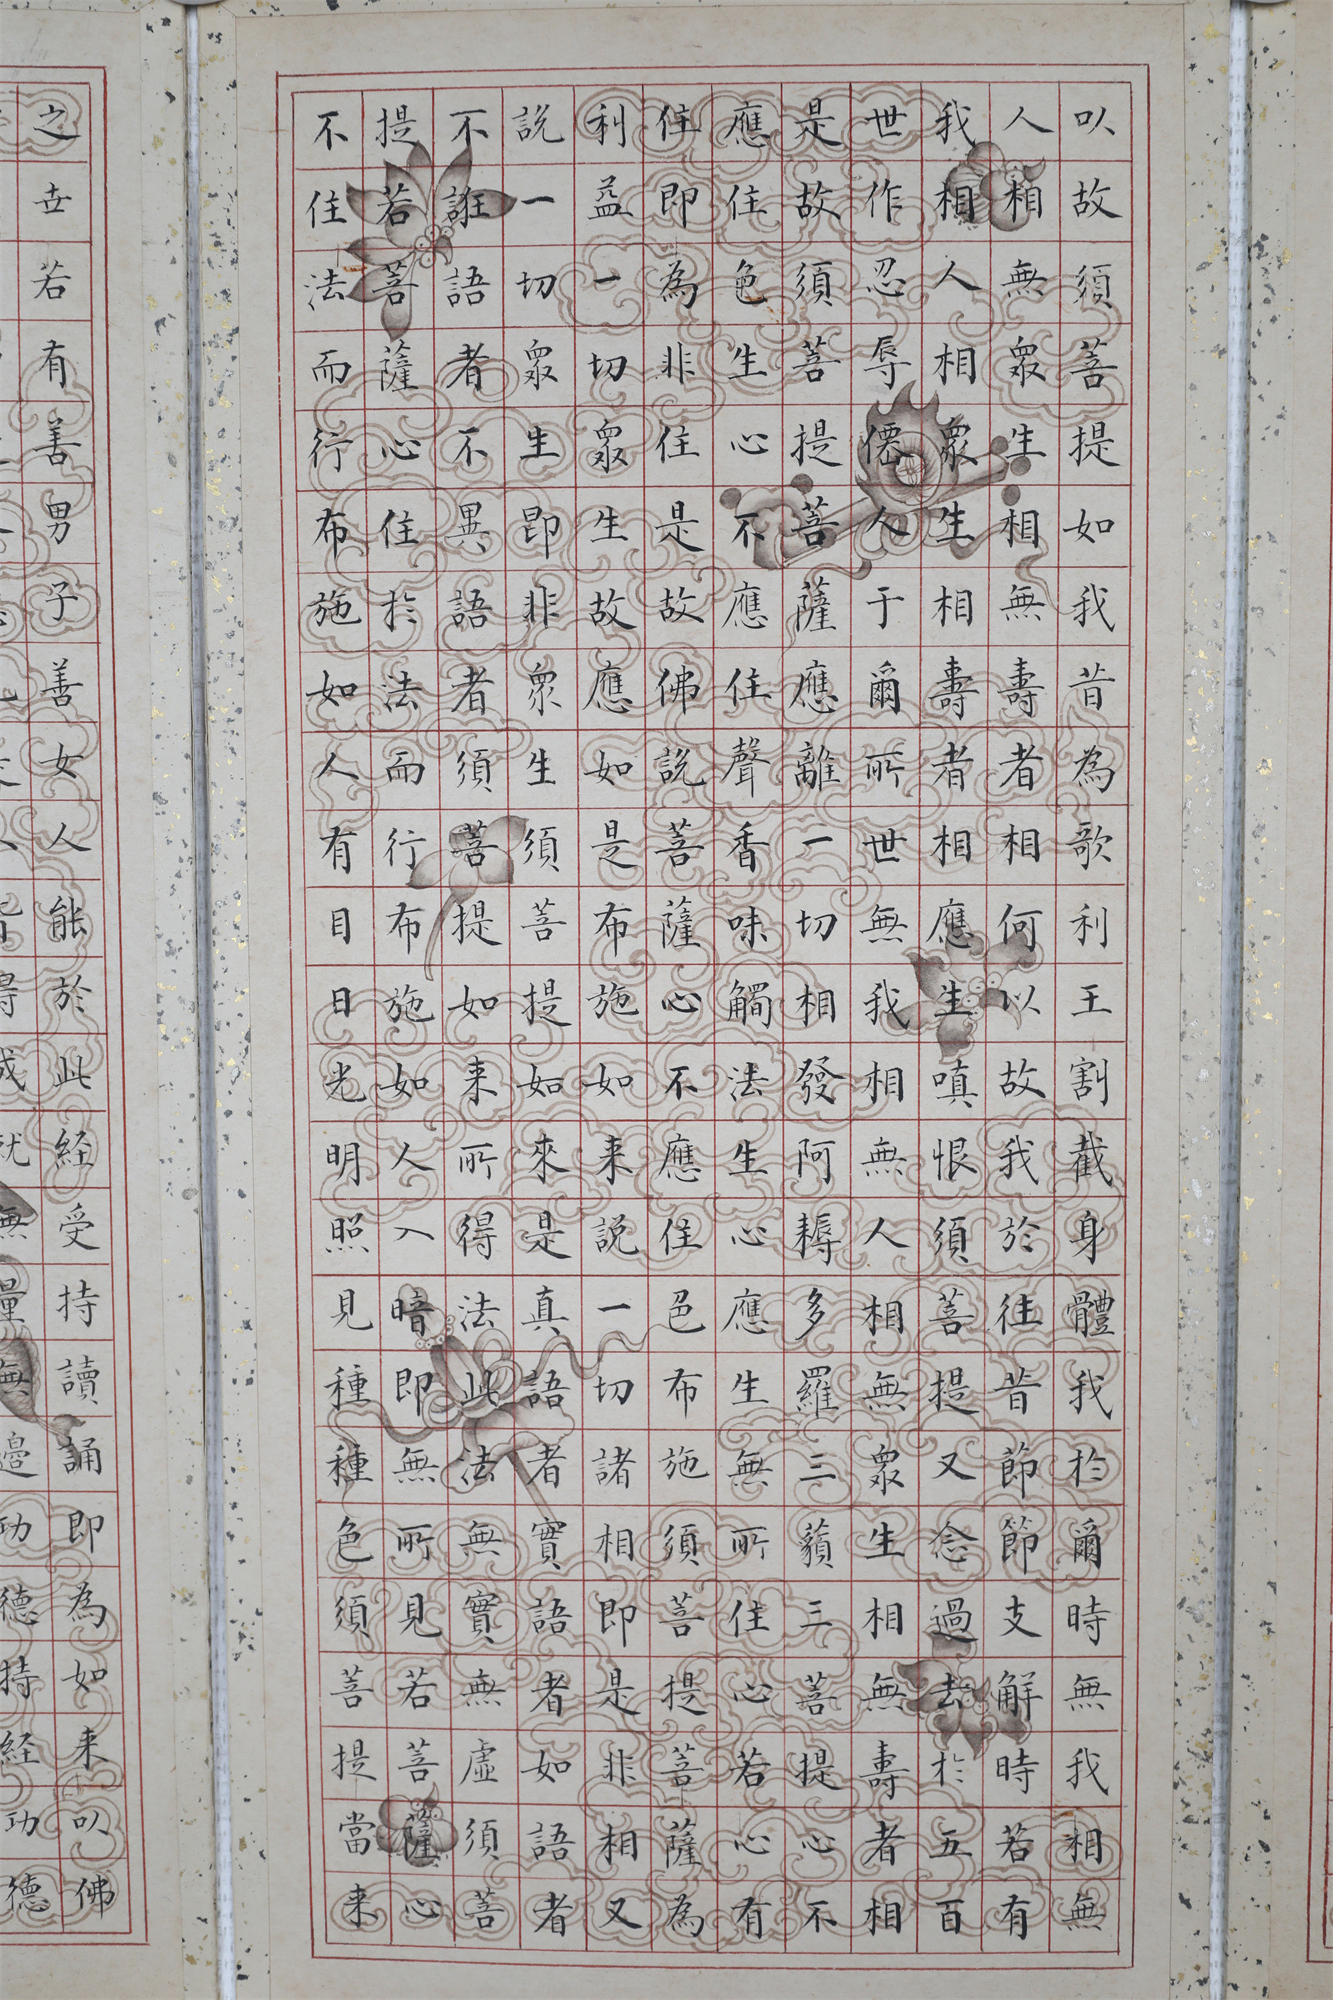 以故須菩提如我昔為歌利王割截身體我於爾時無我相無
人相無眾生相無壽者相何以故我於往昔節節支解時若有
我相人相眾生相壽者相應生嗔恨須菩提又念過去於五百
世作忍辱僊人于爾所世無我相無人相無眾生相無壽者相
是故須菩提菩薩應離一切相發阿耨多羅三藐三菩提心不
應住色生心不應住聲香味觸法生心應生無所住心若心有
住即為非住是故佛說菩薩心不應住色布施須菩提菩薩為
利益一切眾生故應如是布施如来說一切諸相即是非相又
說一切眾生即非眾生須菩提如來是真語者實語者如語者
不誑語者不異語者須菩提如来所得法此法無實無虛須菩
提若菩薩心住於法而行布施如人入暗即無所見若菩薩心
不住法而行布施如人有目日光明照見種種色須菩提當来
之世若有善男子善女人能於此経受持讀誦即為如来以佛
得成就無量無邊功德持経功德